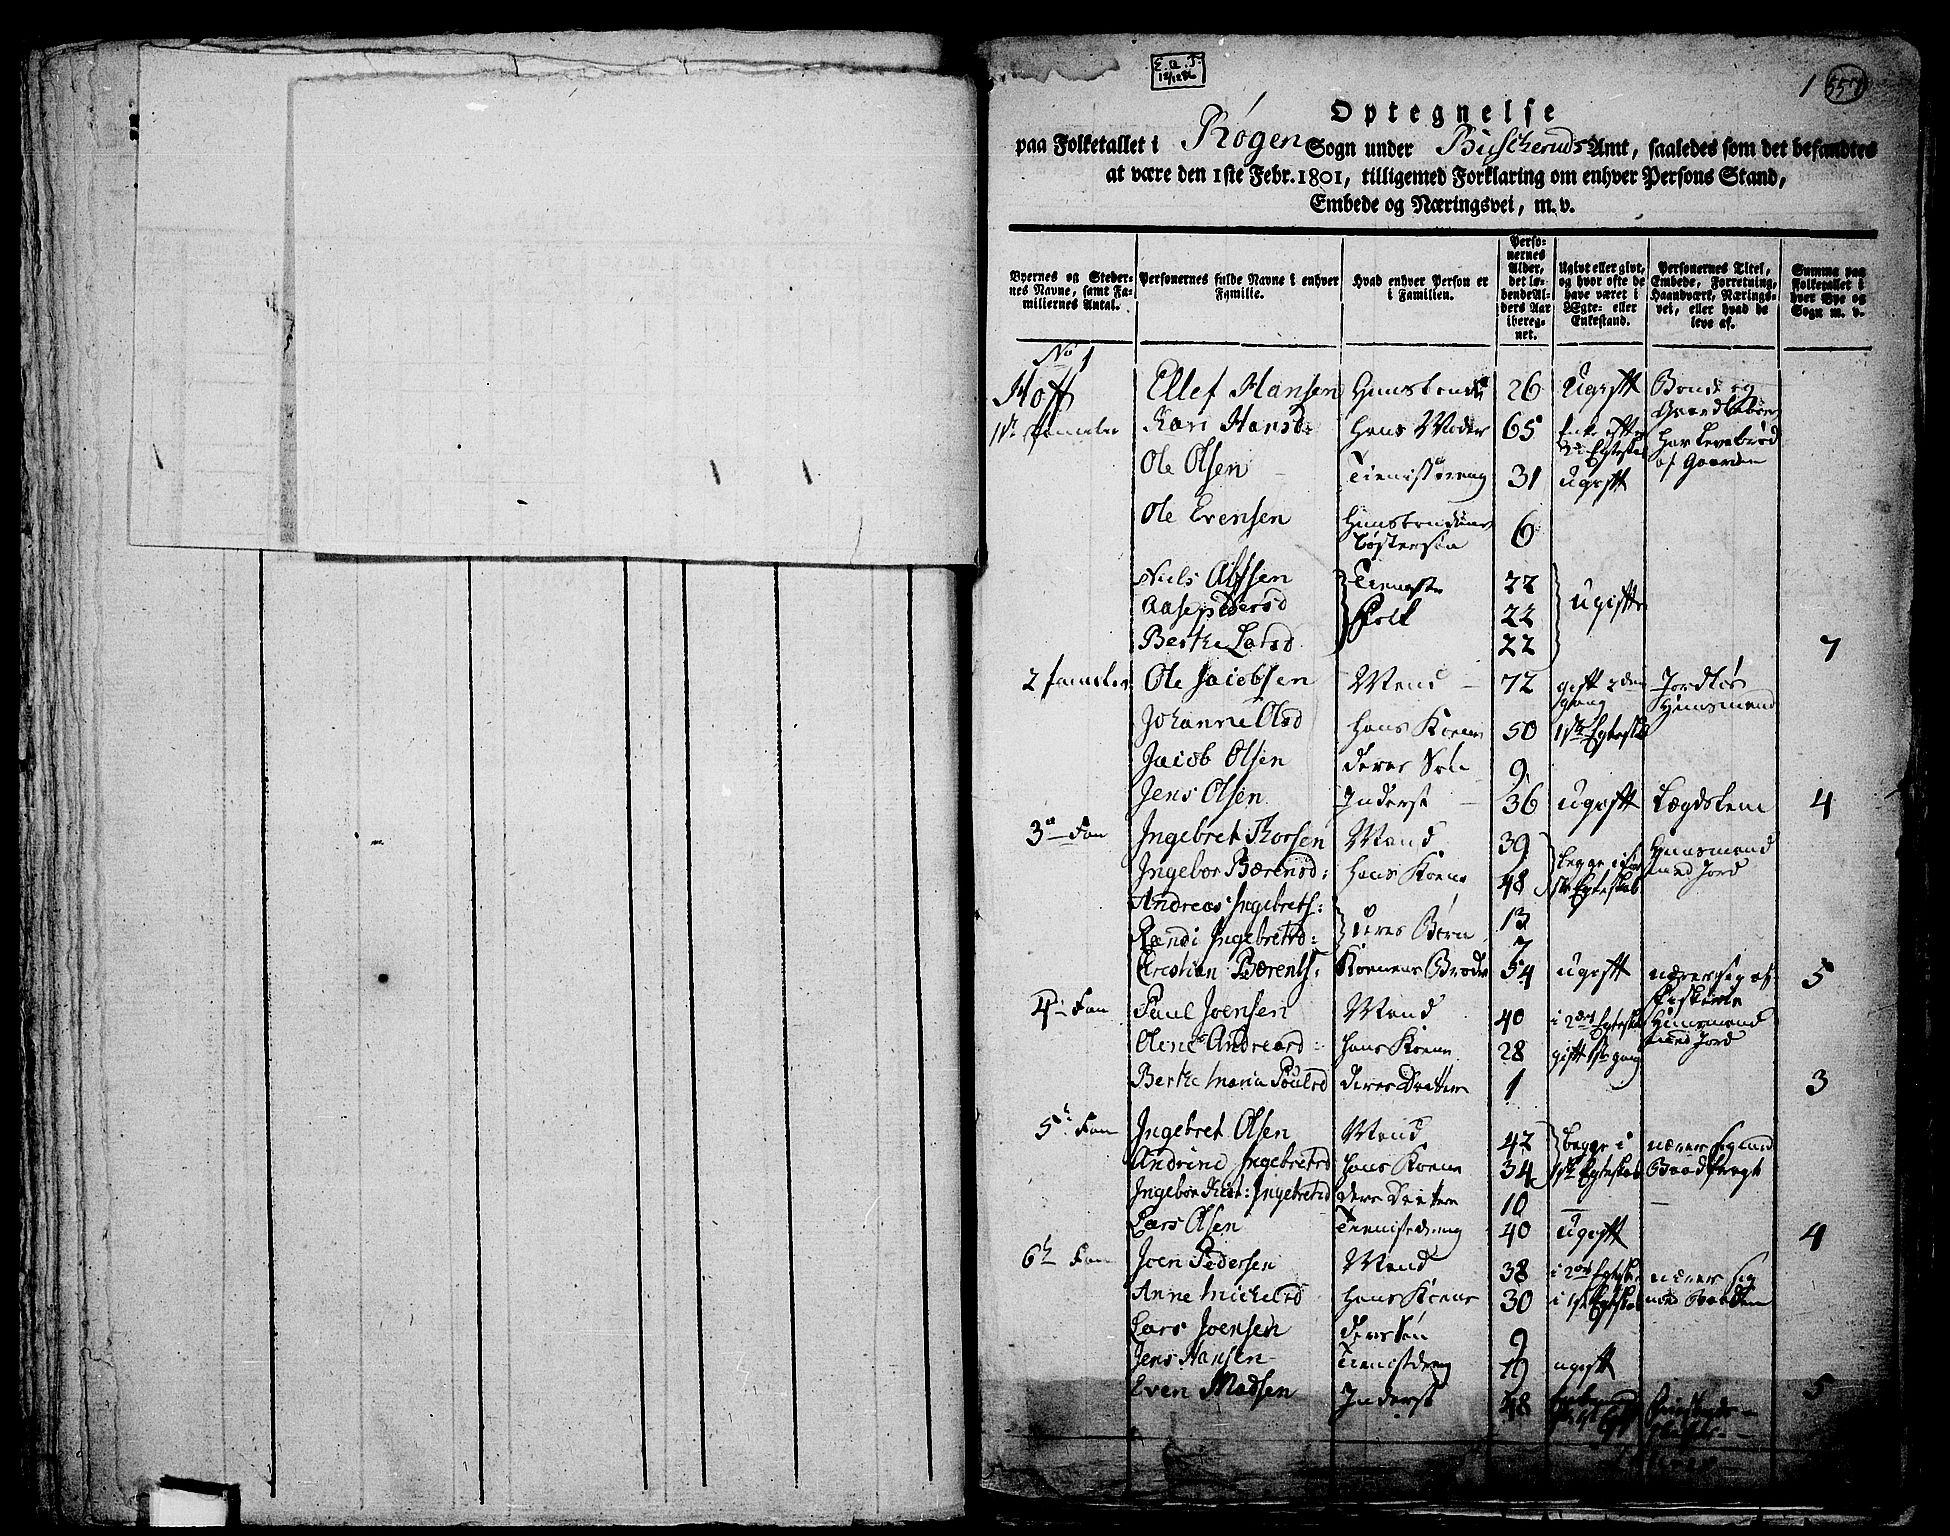 1
Optegnelse
paa Folketallet i Røgen Sogn under Buscheruds Amt, saaledes som det befandtes
at være den 1ste Febr. 1801, tilligemed Forklaring om enhver Persons Stand,
Embede og Næringsvei, m. v.
Byernes og Stedernes Navne, samt Familiernes Antal.
Personernes fulde Navne i enhver Familie.
Hvad enhver Person er i Familien.
Personernes Alder, det løbende Alders Aar iberegnet.
Ugivt eller givt, og hvor ofte de have været i Ægte- eller Enkestand.
Personernes Titel, Embede, Forretning, Haandværk, Næringsvei, eller hvad de leve af.
Summa paa Folketallet i hver Bye og Sogn m. v.
No 1
Hoff Ellef Hansen Huusbonde 26 Ugift Bonde og Gaardbeboer
1te Familie Kari Hansd: hans Moder 65 Enke efter Egteskab har Levebrød af Gaarden
Ole Olsen Tienistdreng 31 ugift
Ole Evensen Huusbondens Søstersøn 6
Niels Olsen Tieneste 22
Aase Pedersd Folk 22 ugifte
Berthe Larsd 22 7
2 Familie Ole Jacobsen Mand 72 gift 2den gang Jordløs Huusmand
Johanne Olsd hans Kone 50 1ste Egteskab
Jacob Olsen deres Søn 9
Jens Olsen Inderst 36 ugift Lægdslem 4
3die Fam Ingebret Thorsen Mand 39 begge i før- Huusmand
Ingebor Bærensd: hans Kone 48 ste Egteskab med Jord
Andreas Ingebrets:
deres Børn 13
Randi Ingebretsd: 7
Cristian Bærents: Konens Broder 54 ugift nærer sig af Fiskerie 5
4de Fam Paul Joensen Mand 40 i 2det Egteskab Huusmand med Jord
Olene Andreasd: hans Kone 28 gift 1ste gang
Berthe Maria Poulsd deres Datter 1 3
5te Fam Ingebret Olsen Mand 42 begge i nærer sig med
Andrine Ingebretsd hans Kone 34 1ste Egteskab
Ingebor Kirst: Ingebretsd deres Datter 10
Lars Olsen Tienistdreng 40 Ugift 4
6te Fam Joen Pedersen Mand 38 i 2det Egteskab nærer sig
Anne Michelsd hans Kone 30 i 1ste Egteskab med
Lars Joensen deres Søn 9
Jens Hansen Tienistdreng 19 ugift
Even Madsen Inderst 48 5